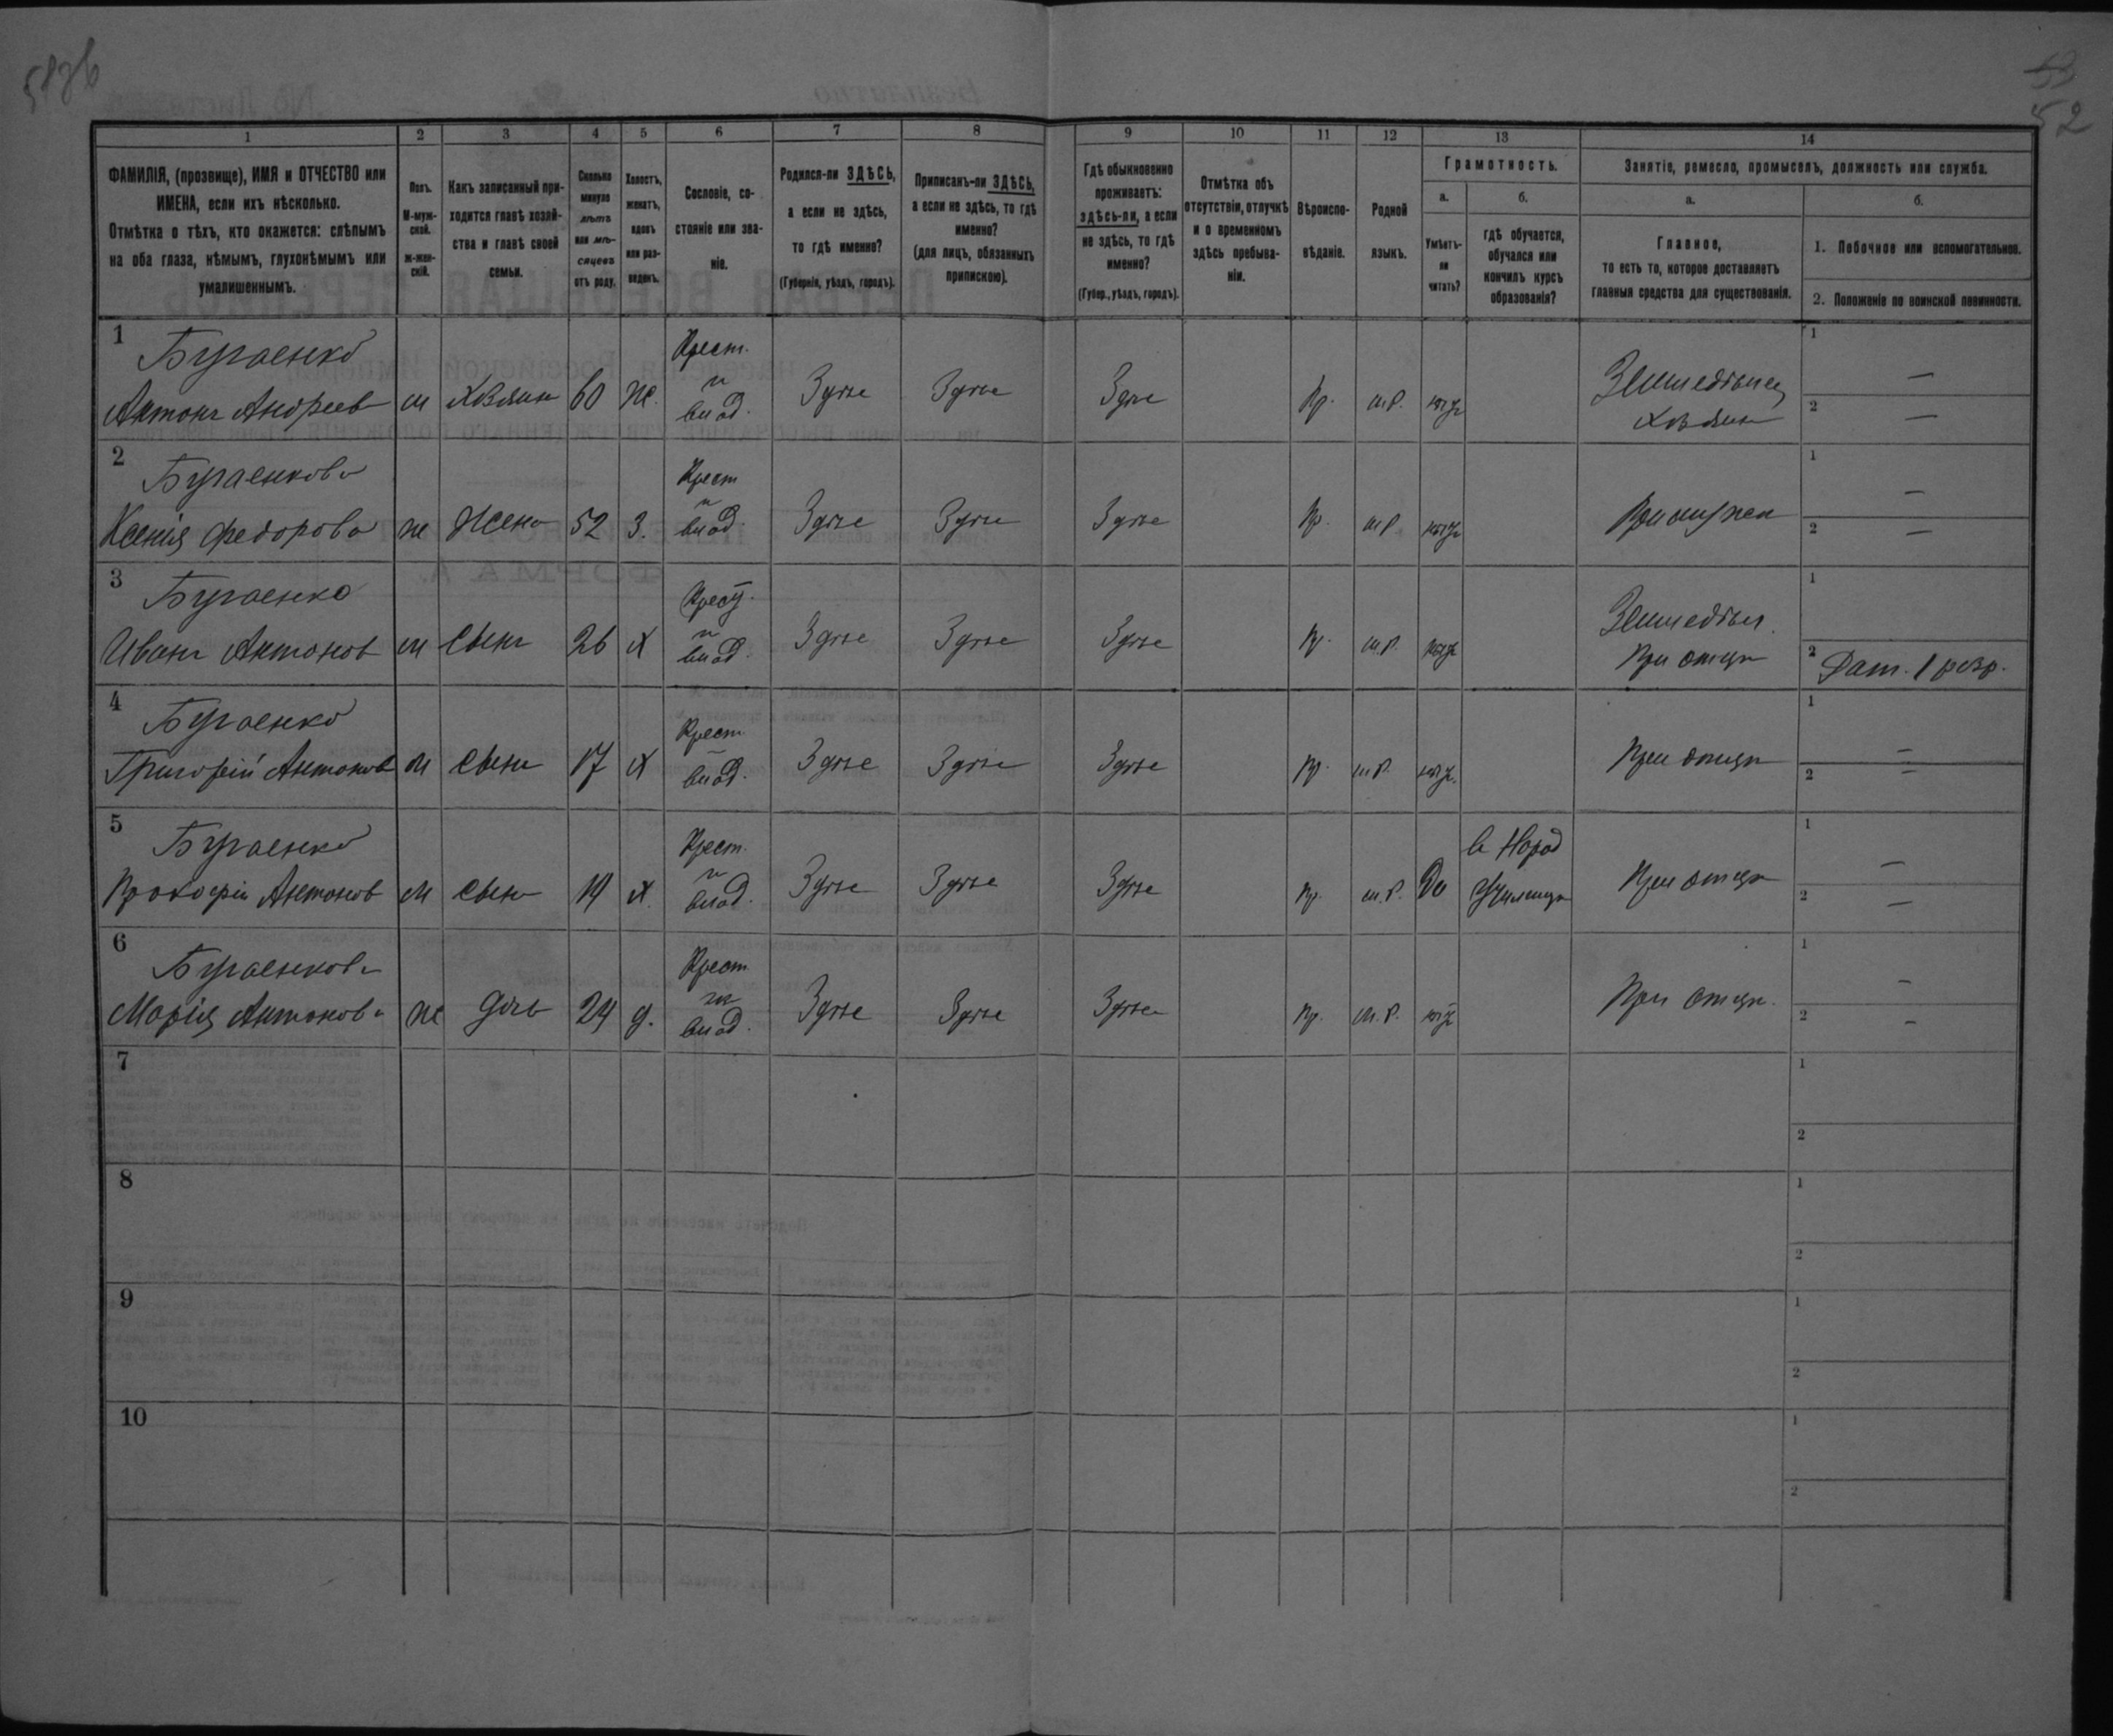 58об
53
52
1 2 3 4 5 6 7 8 9 10 11 12 13 14
ФАМИЛІЯ, (прозвище), ИМЯ и ОТЧЕСТВО или
ИМЕНА, если ихъ нѣсколько.
Отмѣтка о тѣхъ, кто окажется: слѣпымъ
на оба глаза, нѣмымъ, глухонѣмымъ или
умалишеннымъ.
Полъ.
М-муж-
ской.
ж-жен-
скій.
Какъ записанный при-
ходится главѣ хозяй-
ства и главѣ своей
семьи.
Сколько
минуло
лѣтъ
или мѣ-
сяцевъ
отъ роду.
Холостъ,
женатъ,
вдовъ
или раз-
веденъ.
Сословіе, со-
стояніе или зва-
ніе.
Родился-ли ЗДѢСЬ,
а если не здѣсь,
то гдѣ именно?
(Губернія, уѣздъ, городъ).
Приписанъ-ли ЗДѢСЬ,
а если не здѣсь, то гдѣ
именно?
(для лицъ, обязанныхъ
припискою).
Гдѣ обыкновенно
проживаетъ:
здѣсь-ли, а если
не здѣсь, то гдѣ
именно?
(Губер., уѣздъ, городъ).
Отмѣтка объ
отсутствіи, отлучкѣ
и о временномъ
здѣсь пребыва-
ніи.
Вѣроиспо-
вѣданіе.
Родной
языкъ.
Грамотность.
а.
Умѣетъ-
ли
читать?
б.
гдѣ обучается,
обучался или
кончилъ курсъ
образованія?
Занятіе, ремесло, промыселъ, должность или служба.
а.
Главное,
то есть то, которое доставляетъ
главныя средства для существованія.
б.
1. Побочное или вспомогательное.
2. Положеніе по воинской повинности.
1 Бугаенко Крест. 1
Антонъ Андреев м хозяин 60 ж. и влад. Здѣсе Здѣсе Здѣсе Пр. м.р. нѣтъ Земледѣлец —
хозяин 2 —
2 Бугаенкова Крест 1
Ксенія Федорова ж Жена 52 З. и влад. Здѣсе Здѣсе Здѣсе Пр. м.р. нѣтъ При мужеи —
2 —
3 Бугаенко Крест. 1
Иванъ Антонов м Сынъ 26 х и влад. Здѣсе Здѣсе Здѣсе Пр. м.р. нѣтъ Земледѣл.
При отцѣ 2 Рат. 1 разр.
4 Бугаенко Крест. 1
Григорій Антонов м Сынъ 17 х влад. Здѣсе Здѣсе Здѣсе Пр. м.р. нѣтъ. При отцѣ —
2 —
5 Бугаенко Крест. в Народ 1
Прокофій Антонов м Сынъ 14 х. и влад. Здѣсе Здѣсе Здѣсе Пр. м.р. Да Училищѣ При отцѣ —
2 —
6 Бугаенкова Крест. 1
Марія Антонова ж дочь 24 д. и влад. Здѣсе Здѣсе Здѣсе Пр. м.р. нѣтъ При отцѣ. —
2 —
7 1
2
8 1
2
9 1
2
10 1
2